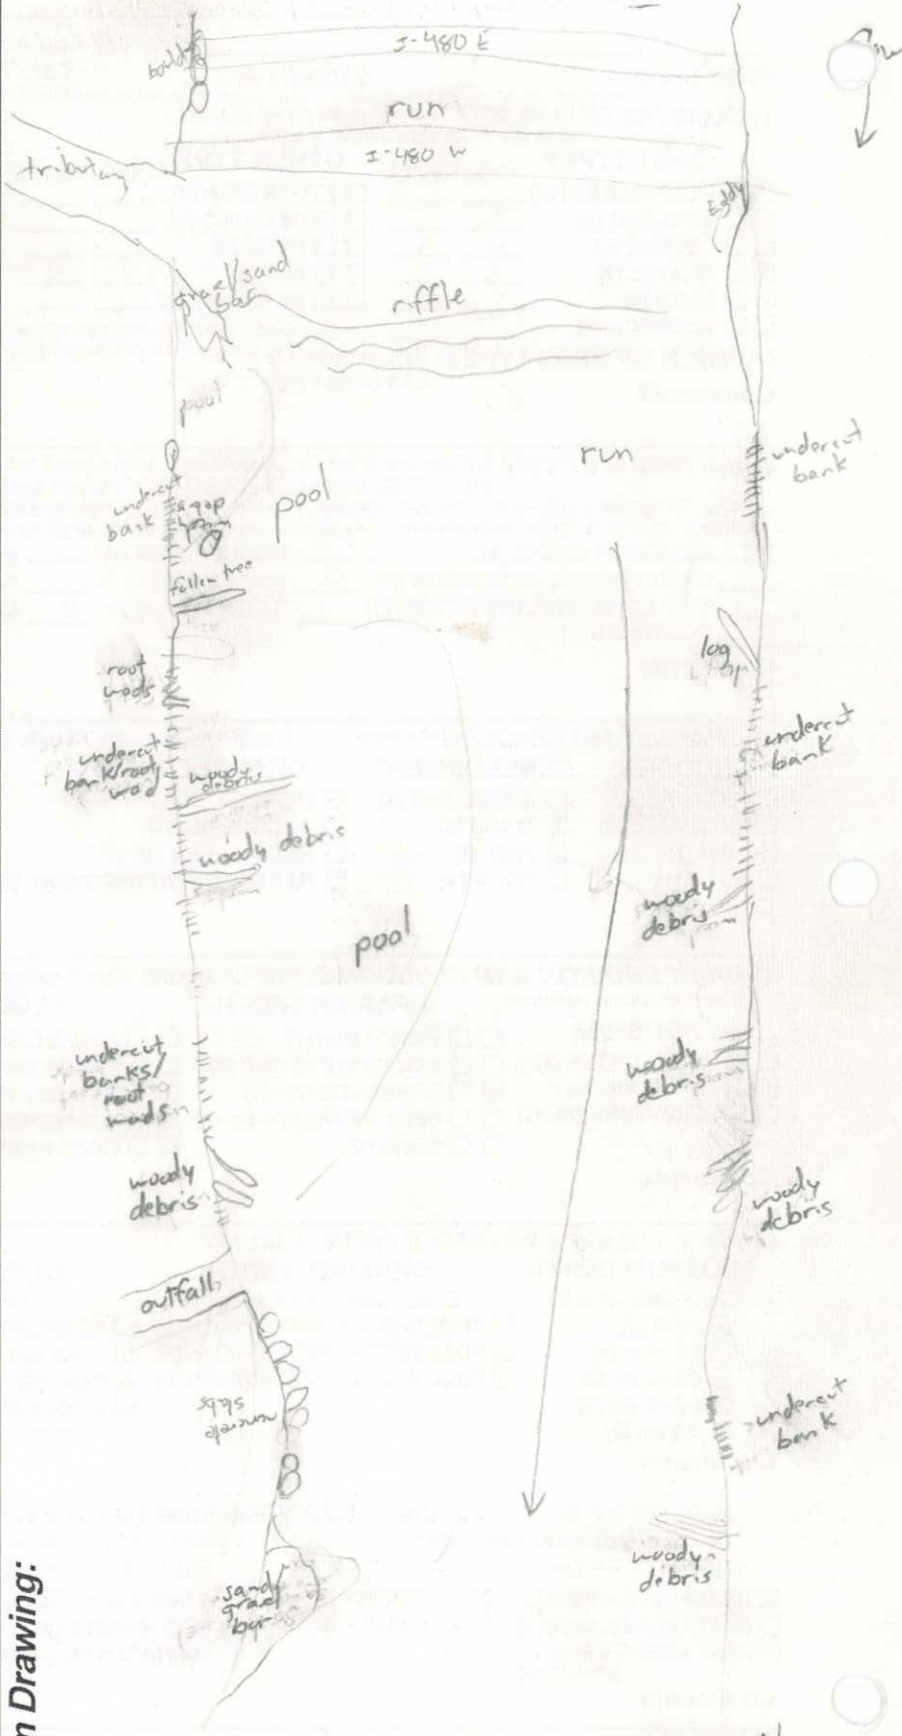 I-480 E
boulds
run
I-480 W
tributary
Eddy
gravel/sand
bar
riffle
pool
run
undercut
bank
pool
undercut
bank
fallen tree
log
root
wads
undercut
bank
undercut
bank/root
wad
woody
debris
woody debris
woody
debris
pool
undercut
banks/
root
wads
woody
debris
woody
debris
woody
debris
outfall
slabs
undercut
bank
woody
debris
sand/
gravel
bar
n Drawing: